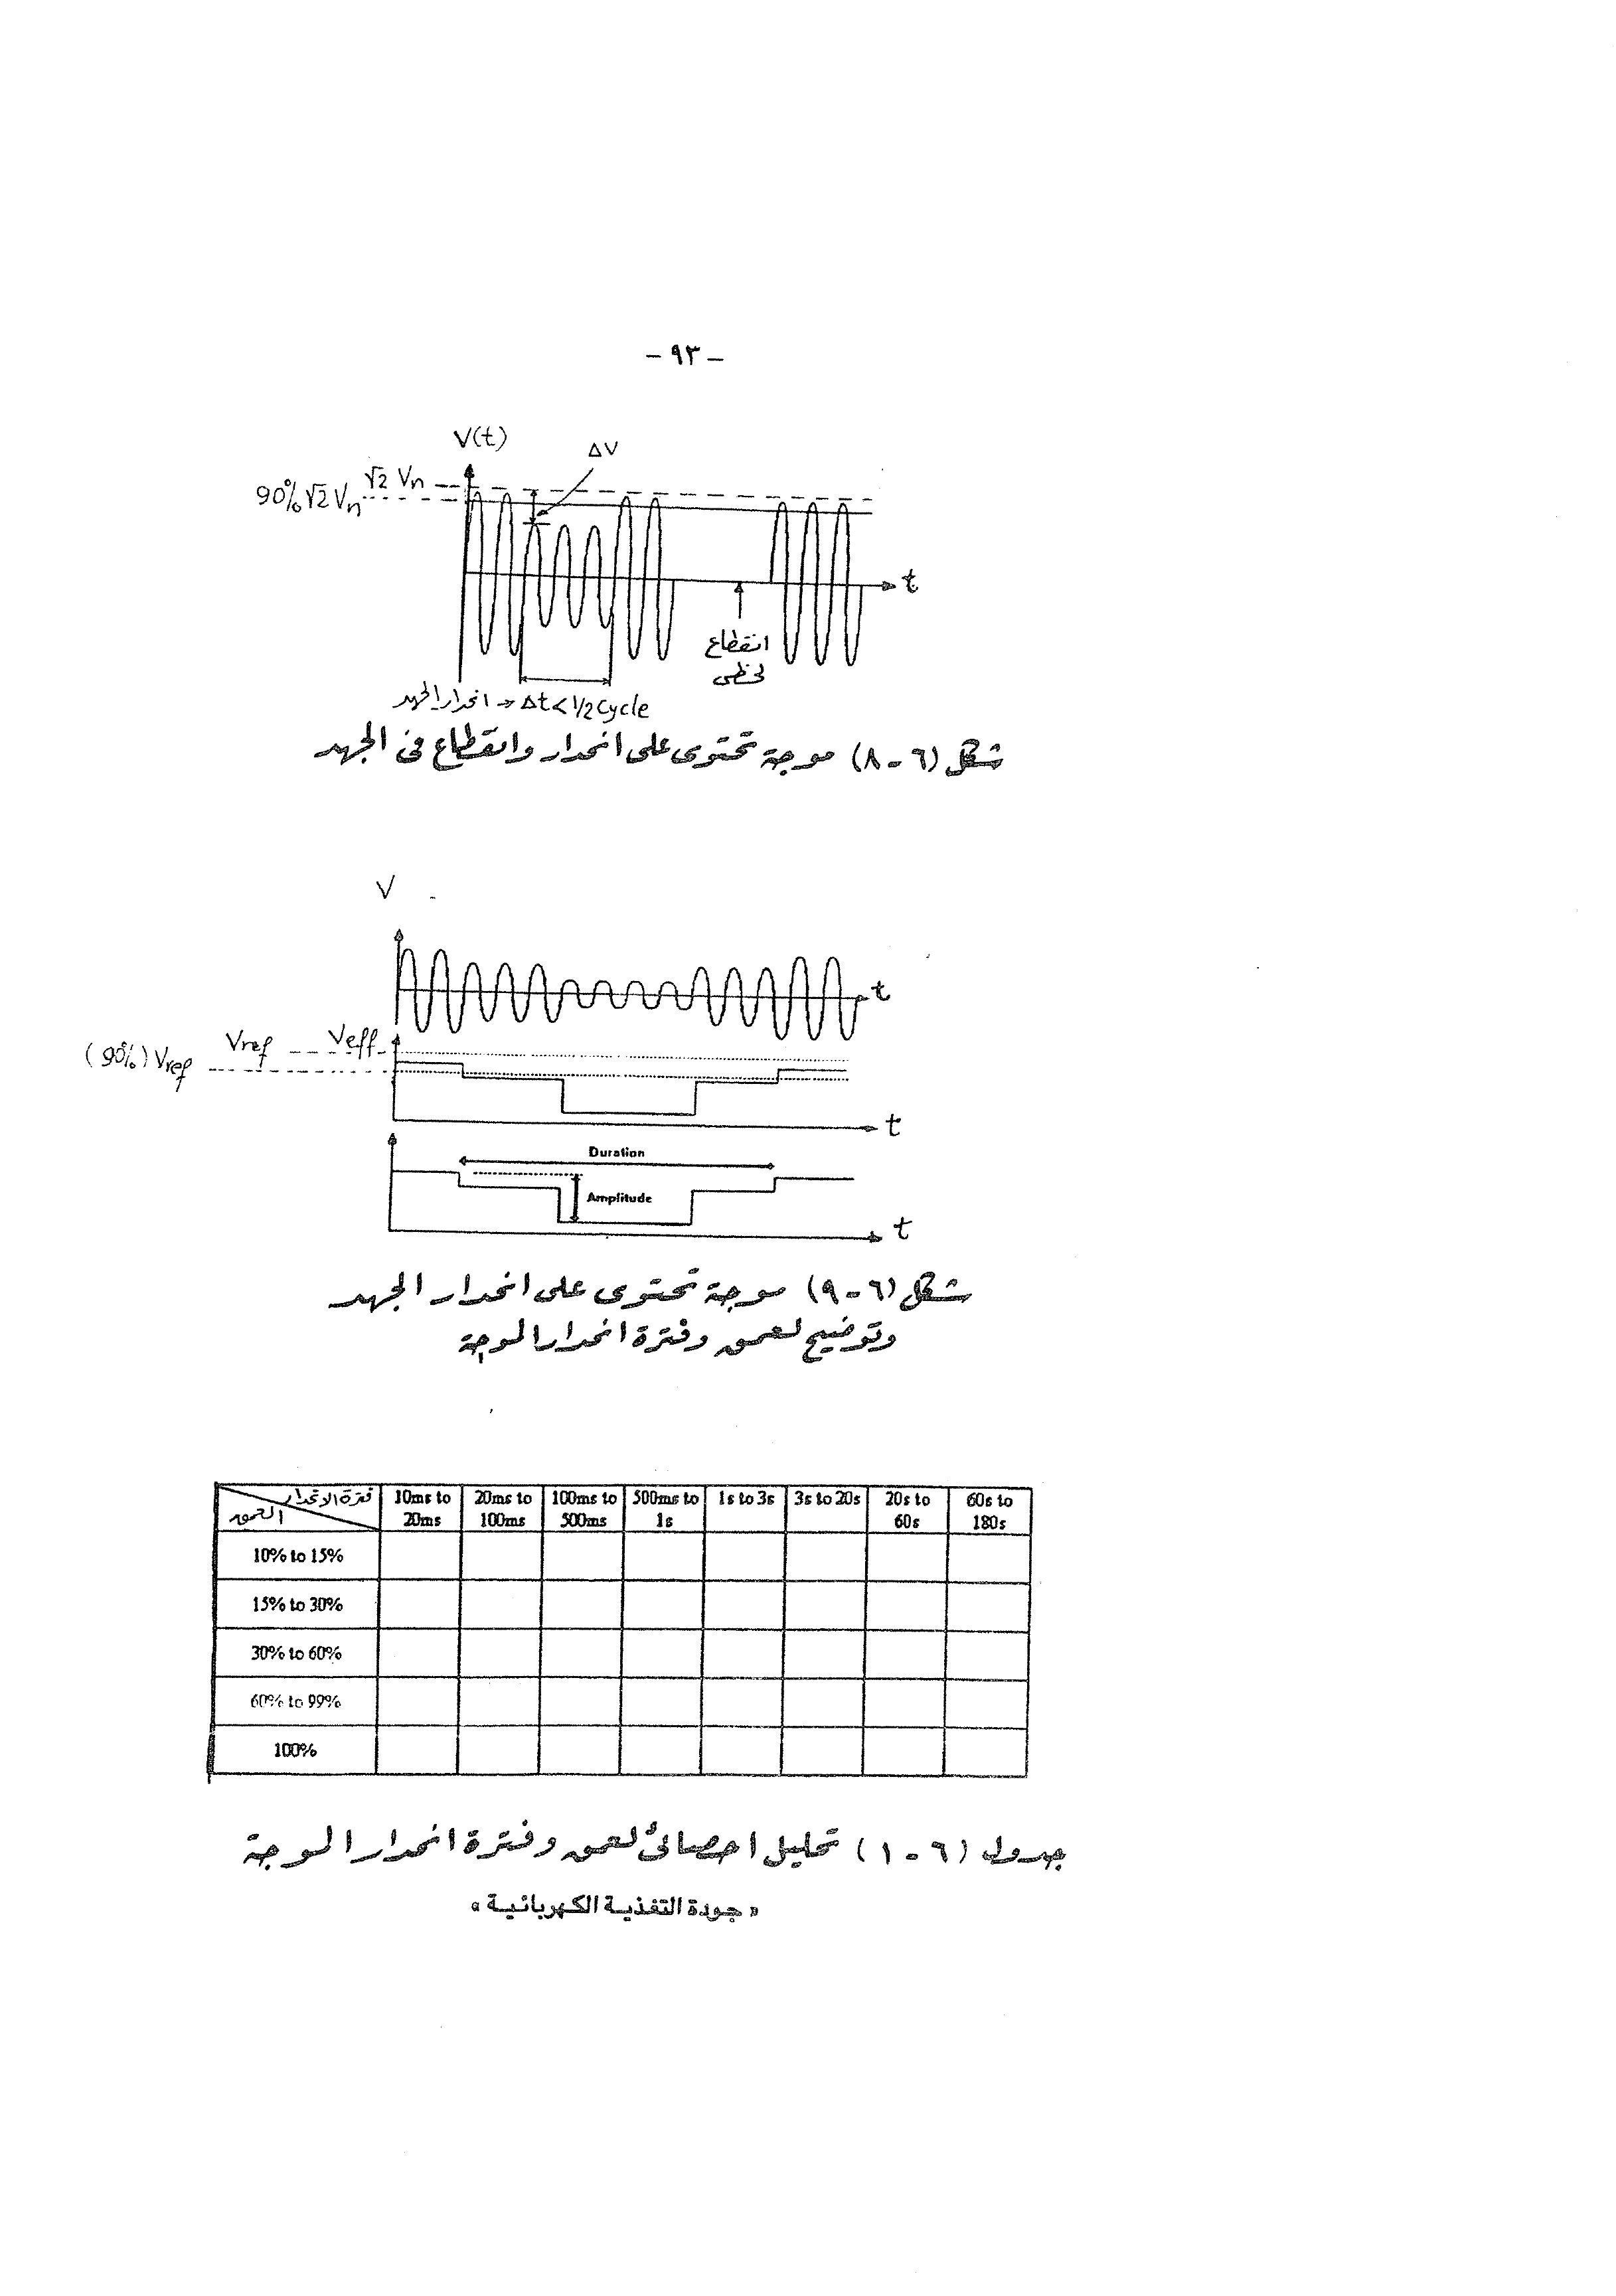 - ٩٣ -
V(t)
ΔV
√2 Vn
90% √2 Vn
t
انقطاع
لحظى
انحدار الجهد → Δt < 1/2 cycle
شكل (٦-٨) موجة تحتوى على انحدار وانقطاع فى الجهد
V
t
Vref Veff
(90%) Vref
t
Duration
Amplitude
t
شكل (٦-٩) موجة تحتوى على انحدار الجهد
وتوضيح لعمق وفترة انحدار الموجة
فترة الانحدار 10ms to 20ms 20ms to 100ms 100ms to 500ms 500ms to 1s 1s to 3s 3s to 20s 20s to 60s 60s to 180s
العمق
10% to 15%
15% to 30%
30% to 60%
60% to 99%
100%
جدول (٦-١) تحليل احصائى لعمق وفترة انحدار الموجة
« جودة التغذية الكهربائية »